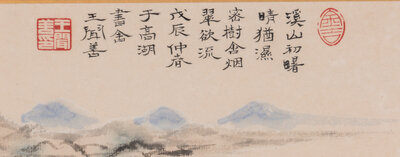 溪山初曙
晴猶濕
密樹含烟
翠欲流
戊辰仲春
于高湖
書舍
王善